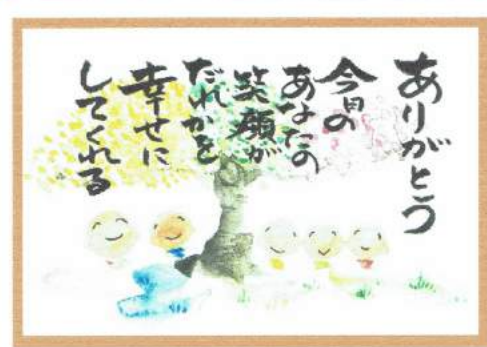 ありがとう
今日の
あなたの
笑顔が
だれかを
幸せに
してくれる